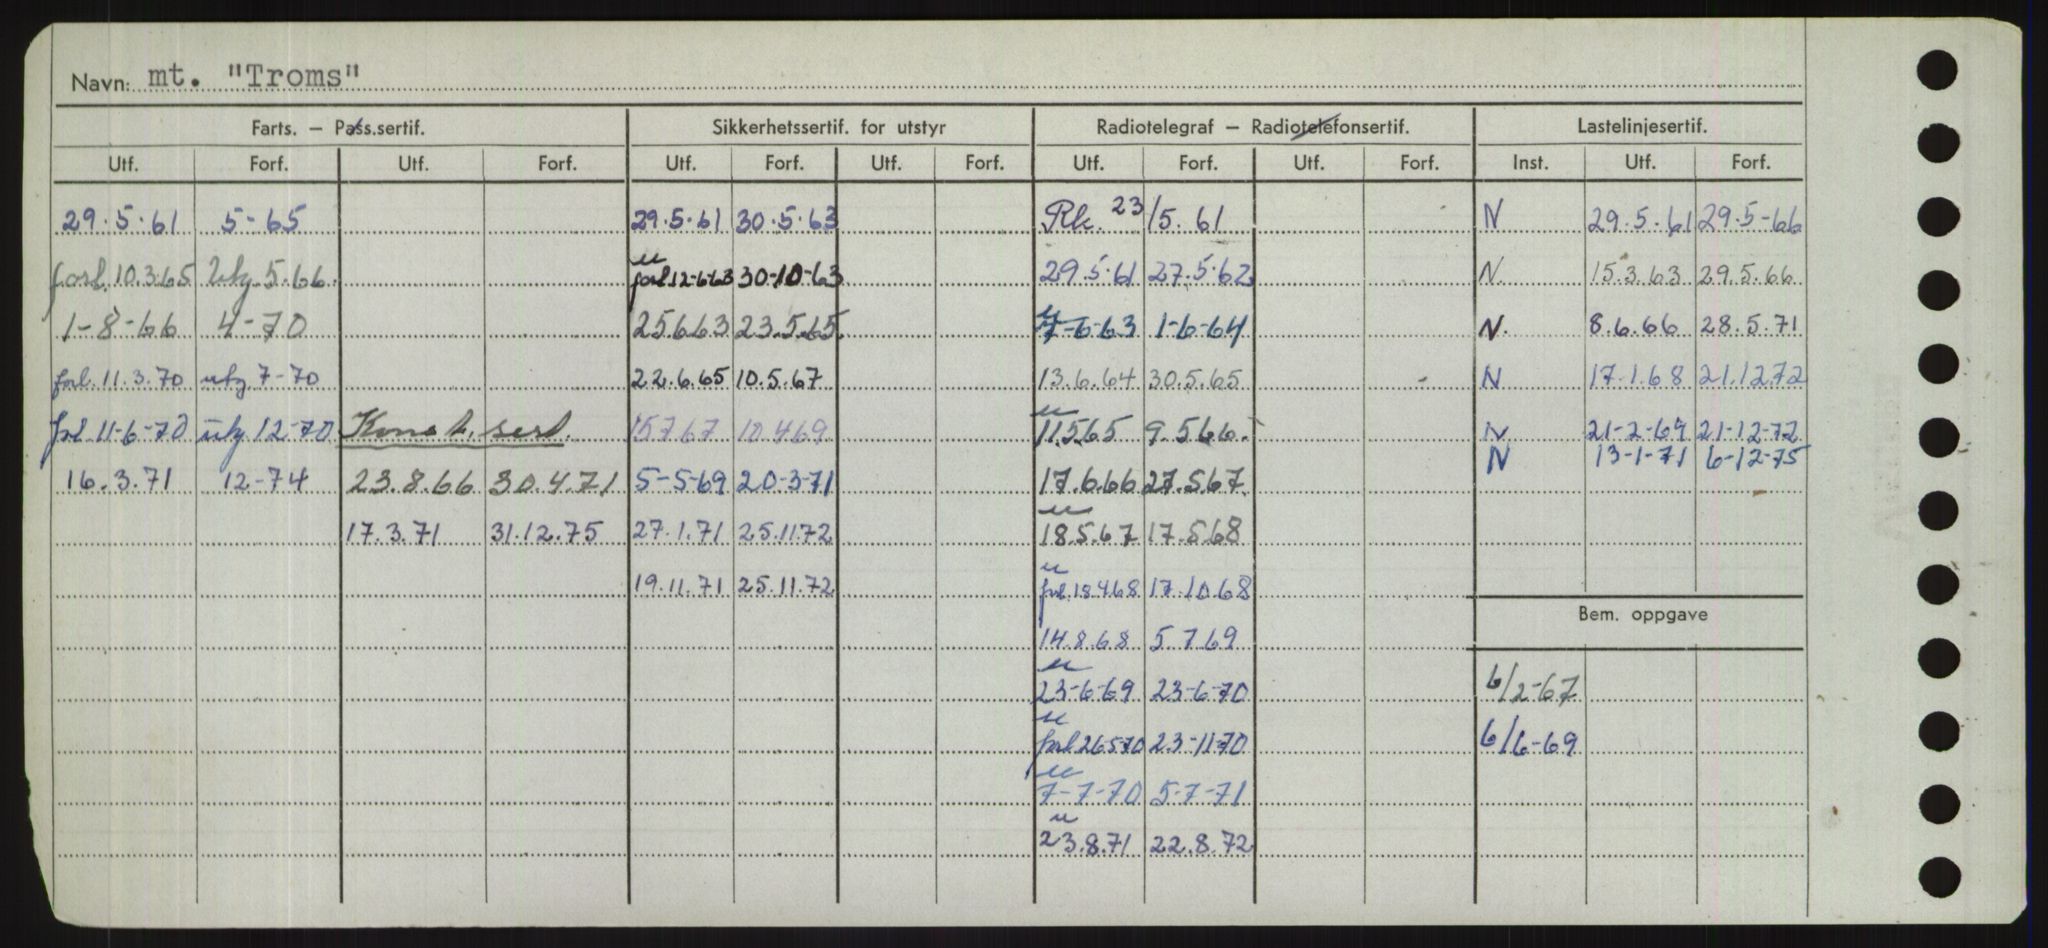 Navn: mt. "Troms"
Farts. – Pass.sertif. Sikkerhetssertif. for utstyr Radiotelegraf – Radiotelefonsertif. Lastelinjesertif.
Utf. Forf. Utf. Forf. Utf. Forf. Utf. Forf. Utf. Forf. Utf. Forf. Inst. Utf. Forf.
29.5.61 5-65 29.5.61 30.5.63 Rk. 23/5.61 N 29.5.61 29.5-66
forl. 10.3.65 utg. 5.66. u forl 12-6-63 30-10-63 29.5.61 27.5.62 N. 15.3.63 29.5.66
1-8-66 4-70 25.6.63 23.5.65. u 7-6-63 1-6-64 N. 8.6.66 28.5.71
forl. 11.3.70 utg 7-70 22.6.65 10.5.67 13.6.64 30.5.65 N 17.1.68 21.12.72
forl 11-6-70 utg 12-70 Konst. sert. 15767 10.469 u 11.5.65 9.5.66. N 21-2-69 21-12-72
N 13-1-71 6-12-75
16.3.71 12-74 23.8.66 30.4.71 5-5-69 20-3-71 17.6.66 27.5.67.
17.3.71 31.12.75 27.1.71 25.11.72 u 18.5.67 17.5.68
19.11.71 25.11.72 u forl. 18.4.68 17.10.68
Bem. oppgave
14.8.68 5.7.69
u 23-6-69 23-6-70 6/2-67
u forl 26570 23-11-70 6/6-69
u 7-7-70 5-7-71
u 23.8.71 22.8.72